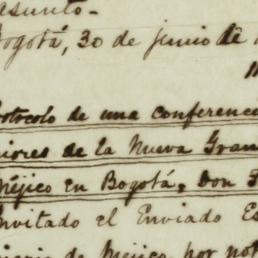 asunto.-
Bogotá, 30 de junio de
Protocolo de una conferenc
riores de la Nueva Gran
Méjico en Bogotá, Don
Invitado el Enviado Es
de Méjico, por